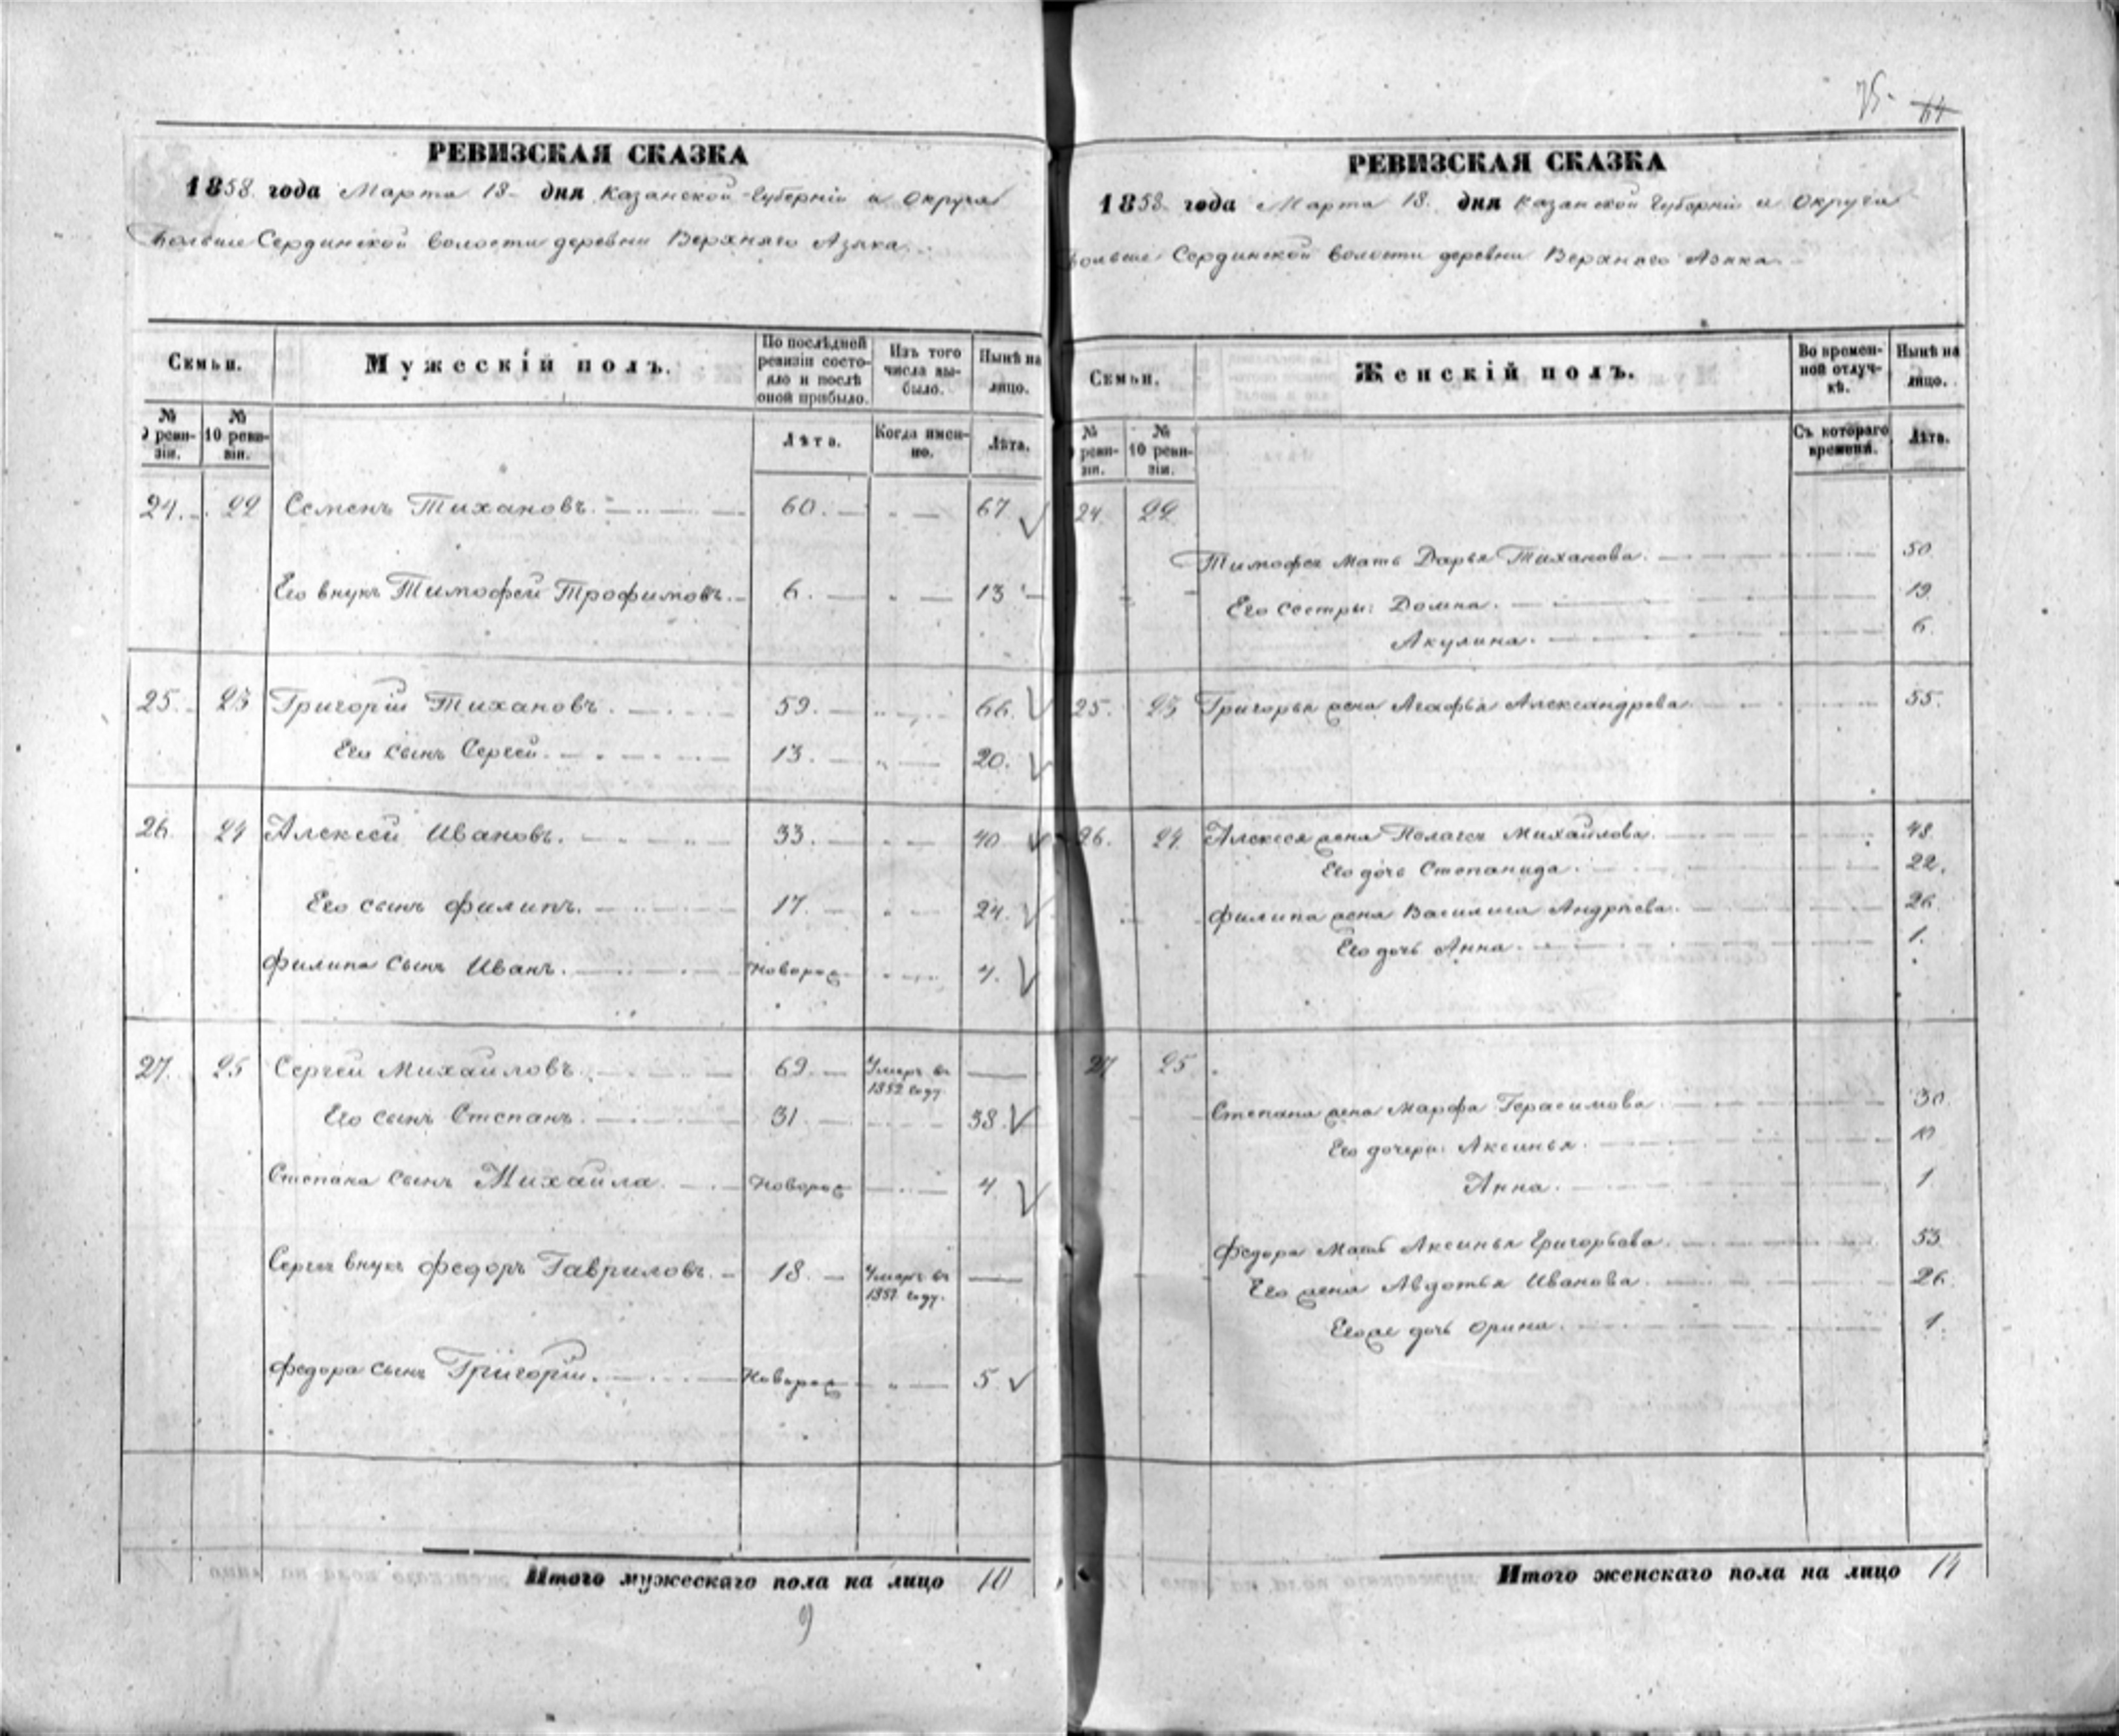 75. 64
РЕВИЗСКАЯ СКАЗКА
1858. года Марта 18- дня Казанской Губерніи и Округа
Больше Сердинской Волости деревни Верхняго Азяка
Семьи.
Мужескій полъ.
По послѣдней ревизіи состояло и послѣ оной прибыло.
Изъ того числа выбыло.
Нынѣ на лицо.
№ 9 ревизіи.
№ 10 ревизіи.
Лѣта.
Когда именно.
Лѣта.
24. 22 Семенъ Тихановъ. 60. 67
Его внукъ Тимофей Трофимовъ. 6. 13
25. 23 Григорій Тихановъ. 59. 66.
Его сынъ Сергей. 13. 20.
26. 24 Алексей Ивановъ. 33. 40
Его сынъ Филипъ. 17. 24.
Филипа сынъ Иванъ. Новорож 4.
27. 25 Сергей Михайловъ. 69. Умеръ въ 1852 году.
Его сынъ Степанъ. 31 38.
Степана сынъ Михаила. Новорож 4
Сергея внукъ Федоръ Гавриловъ. 18. Умеръ въ 1857 году.
Федора сынъ Григорій. Новорож 5
Итого мужескаго пола на лицо 10
9
РЕВИЗСКАЯ СКАЗКА
1858. года Марта 18. дня Казанской Губерніи и Округа
Больше Сердинской Волости деревни Верхняго Азяка
Семьи.
Женскій полъ.
Во временной отлучкѣ.
Нынѣ на лицо.
№ ревизіи.
№ 10 ревизіи.
Съ котораго времени.
Лѣта.
24. 22
Тимофея Мать Дарья Тиханова. 50.
Его сестры: Домна. 19.
Акулина. 6.
25. 23 Григорья жена Агафья Александрова 55.
26. 24. Алексея жена Пелагея Михайлова. 48.
Его дочь Степанида. 22.
Филипа жена Василиса Андрѣева. 26.
Его дочь Анна. 1.
27 25
Степана жена Марфа Герасимова. 30.
Его дочери: Аксинья. 10
Анна. 1
Федора Мать Аксинья Григорьева. 53
Его жена Авдотья Иванова. 26.
Егоже дочь Орина. 1.
Итого женскаго пола на лицо 14